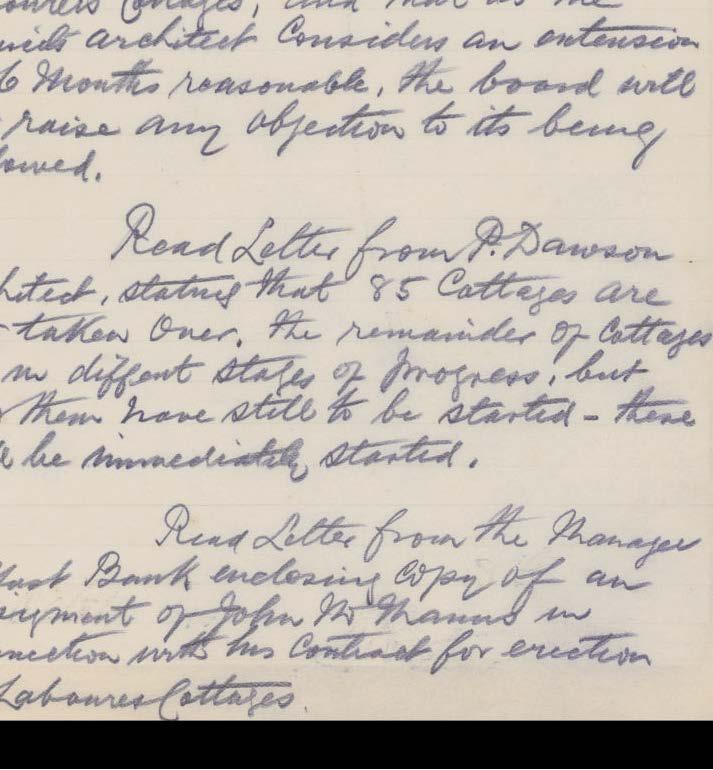 Cottages, and that as the
architect Considers an extension
6 Months reasonable, the board will
raise any objection to its being
lowed.
Read Letter from P. Dawson
hitect, stating that 85 Cottages are
taken over. The remainder of Cottages
in diffent stages of progress, but
them have still to be started - these
l be immediately started.
Read Letter from the Manager
fast Bank enclosing copy of an
signment of John Mc Manus in
nnection with his Contract for erection
Laboures Cottages.